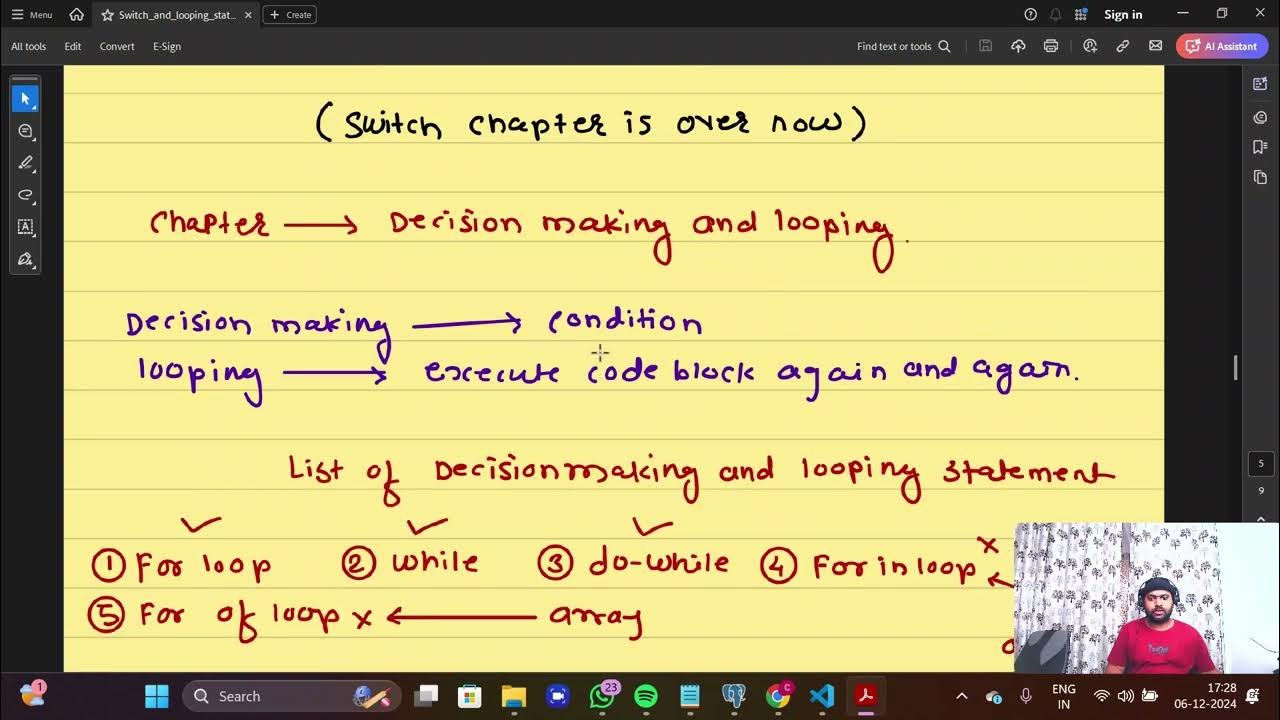 Menu
Switch_and_looping_stat...
Create
Sign in
All tools
Edit
Convert
E-Sign
Find text or tools
AI Assistant
(Switch chapter is over now)
Chapter → Decision making and looping.
Decision making → condition
looping → execute code block again and again.
List of Decision making and looping statement
① For loop ② while ③ do-while ④ For in loop x
⑤ For of loop x ← array
5
9
1
Search
23
C
ENG
IN
17:28
06-12-2024